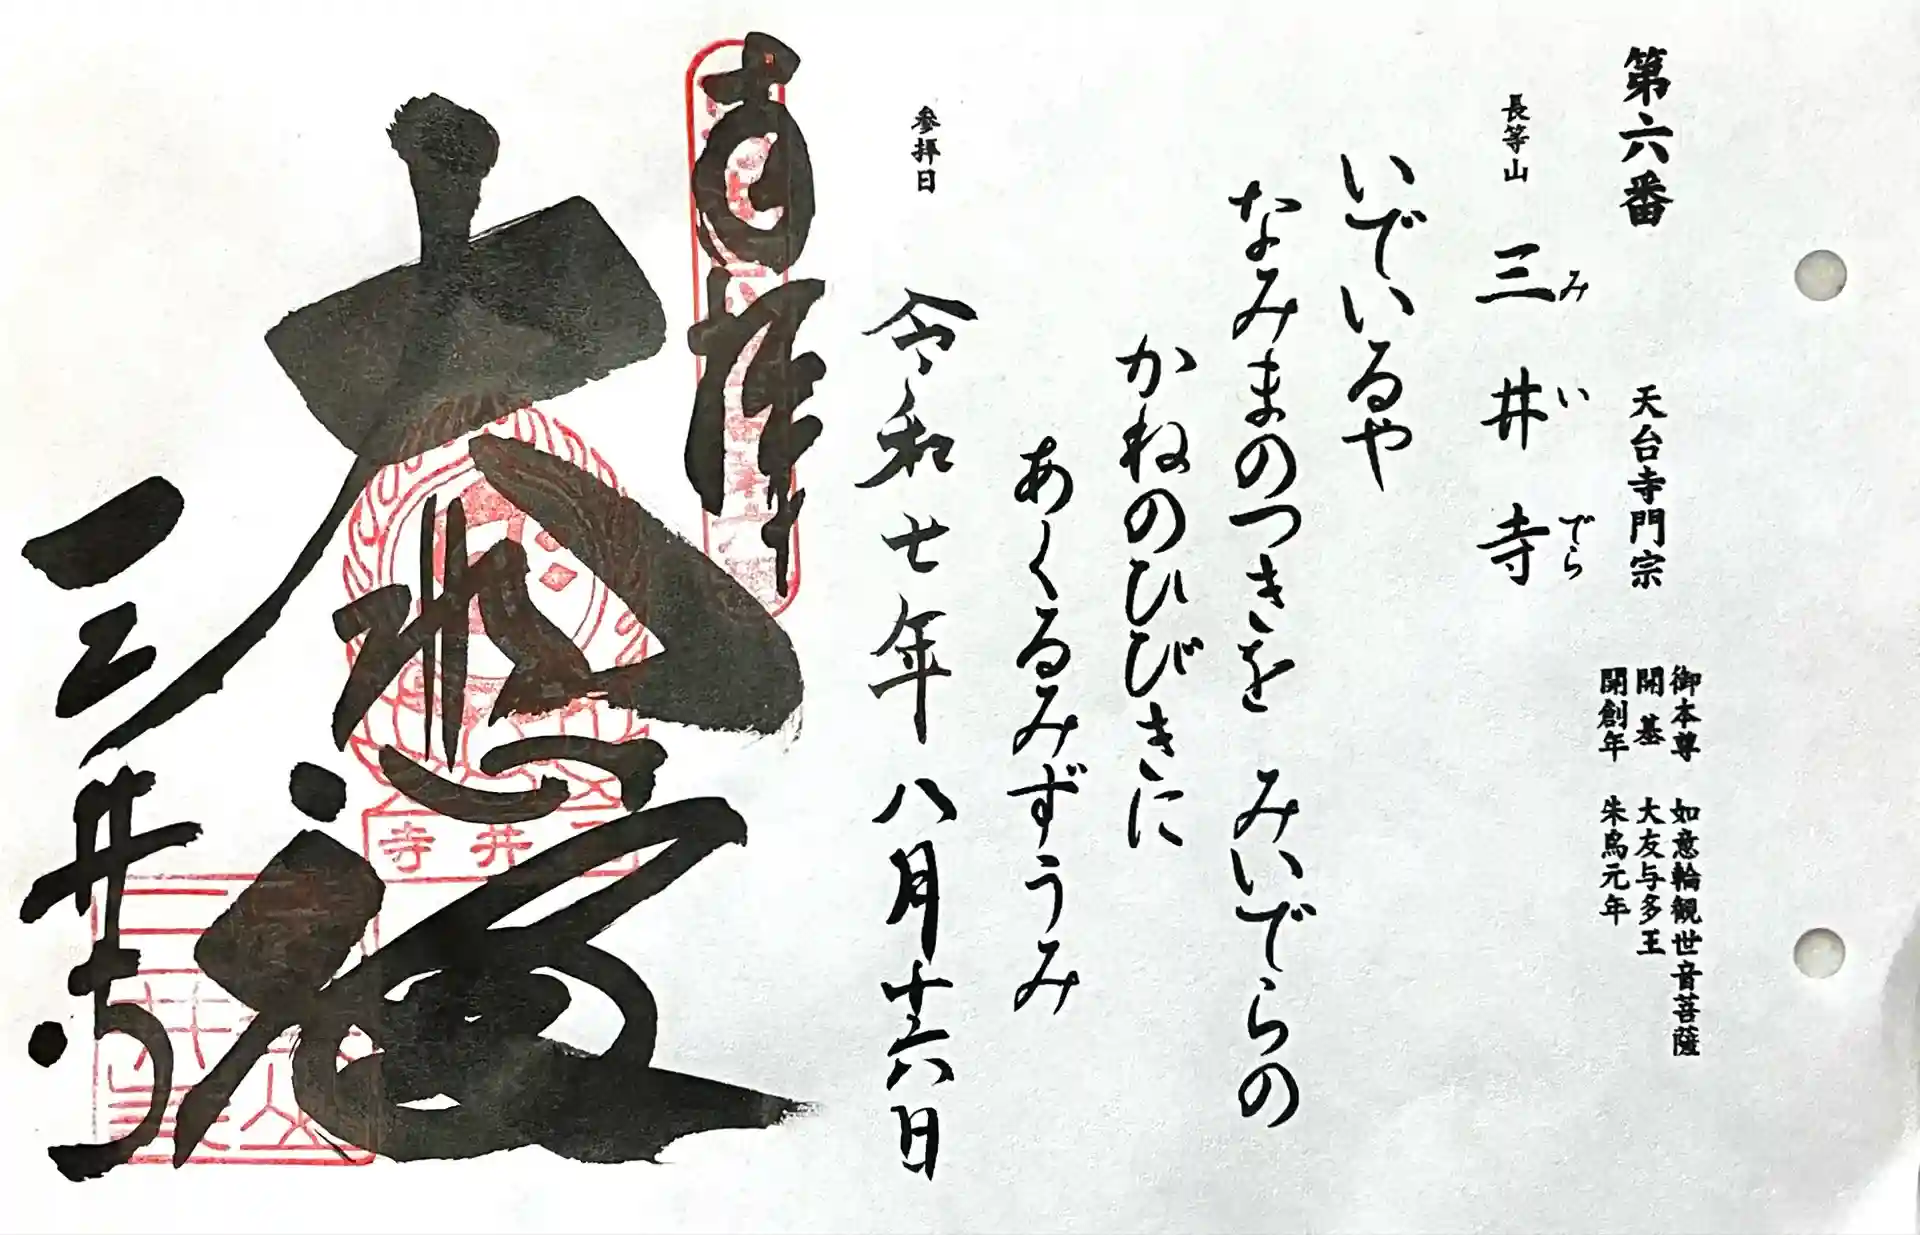 第六番 天台寺門宗
御本尊 如意輪観世音菩薩
開基 大友与多王
開創年 朱鳥元年
長等山 三井寺
みいでら
いでいるや
なみまのつきを みいでらの
かねのひびきに
あくるみずうみ
参拝日 令和七年八月十六日
奉拝
大悲殿
三井寺
三井寺